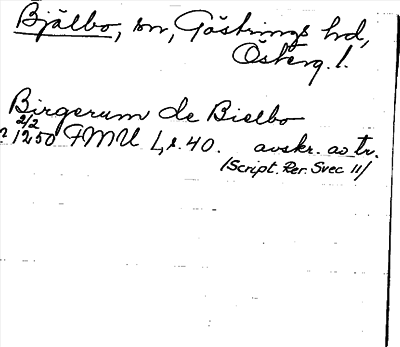 Bjälbo, sn, Göstrings hd,
Österg. l.
Birgerum de Bielbo
2/2
1250 FMU I, s. 40. avskr. av tr.
/Script. Rer. Svec II/